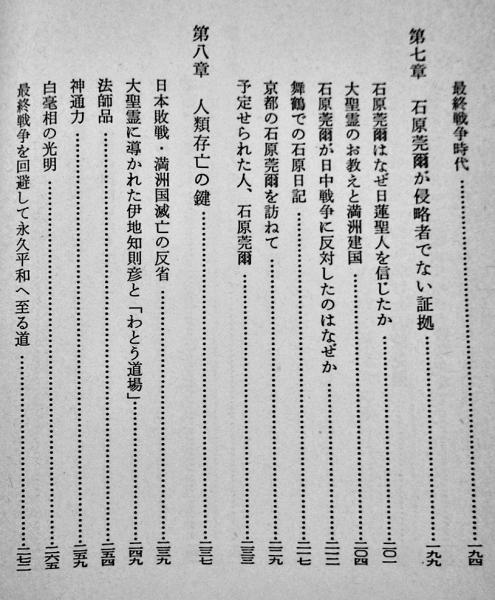 最終戦争時代……一九四
第七章 石原莞爾が侵略者でない証拠……一九九
石原莞爾はなぜ日蓮聖人を信じたか……二〇一
大聖霊のお教えと満洲建国……二〇四
石原莞爾が日中戦争に反対したのはなぜか……二一二
舞鶴での石原日記……二一七
京都の石原莞爾を訪ねて……二二九
予定せられた人、石原莞爾……二三三
第八章 人類存亡の鍵……二三七
日本敗戦・満洲国滅亡の反省……二三九
大聖霊に導かれた伊地知則彦と「わとう道場」……二四九
法師品……二五四
神通力……二五九
白毫相の光明……二六五
最終戦争を回避して永久平和へ至る道……二七二